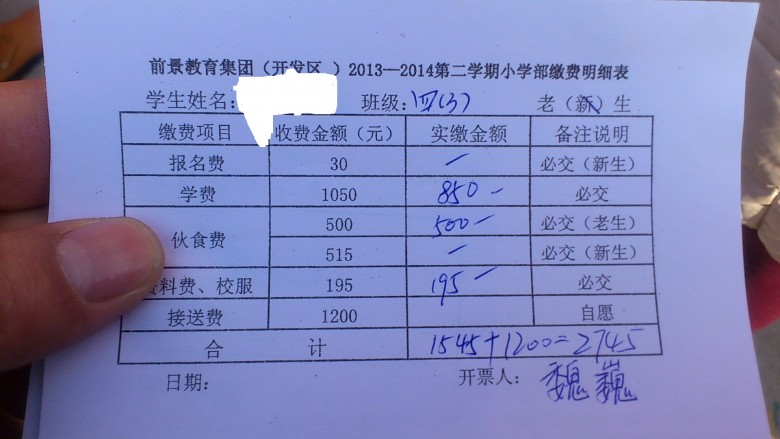 前景教育集团（开发区 ）2013—2014第二学期小学部缴费明细表
学生姓名: 班级:四(3) 老（新）生
缴费项目 收费金额（元） 实缴金额 备注说明
报名费 30 — 必交（新生）
学费 1050 850 — 必交
伙食费 500 500 — 必交（老生）
515 — 必交（新生）
料费、校服 195 195 — 必交
接送费 1200 自愿
合 计 1545+1200=2745
日期: 开票人: 魏巍